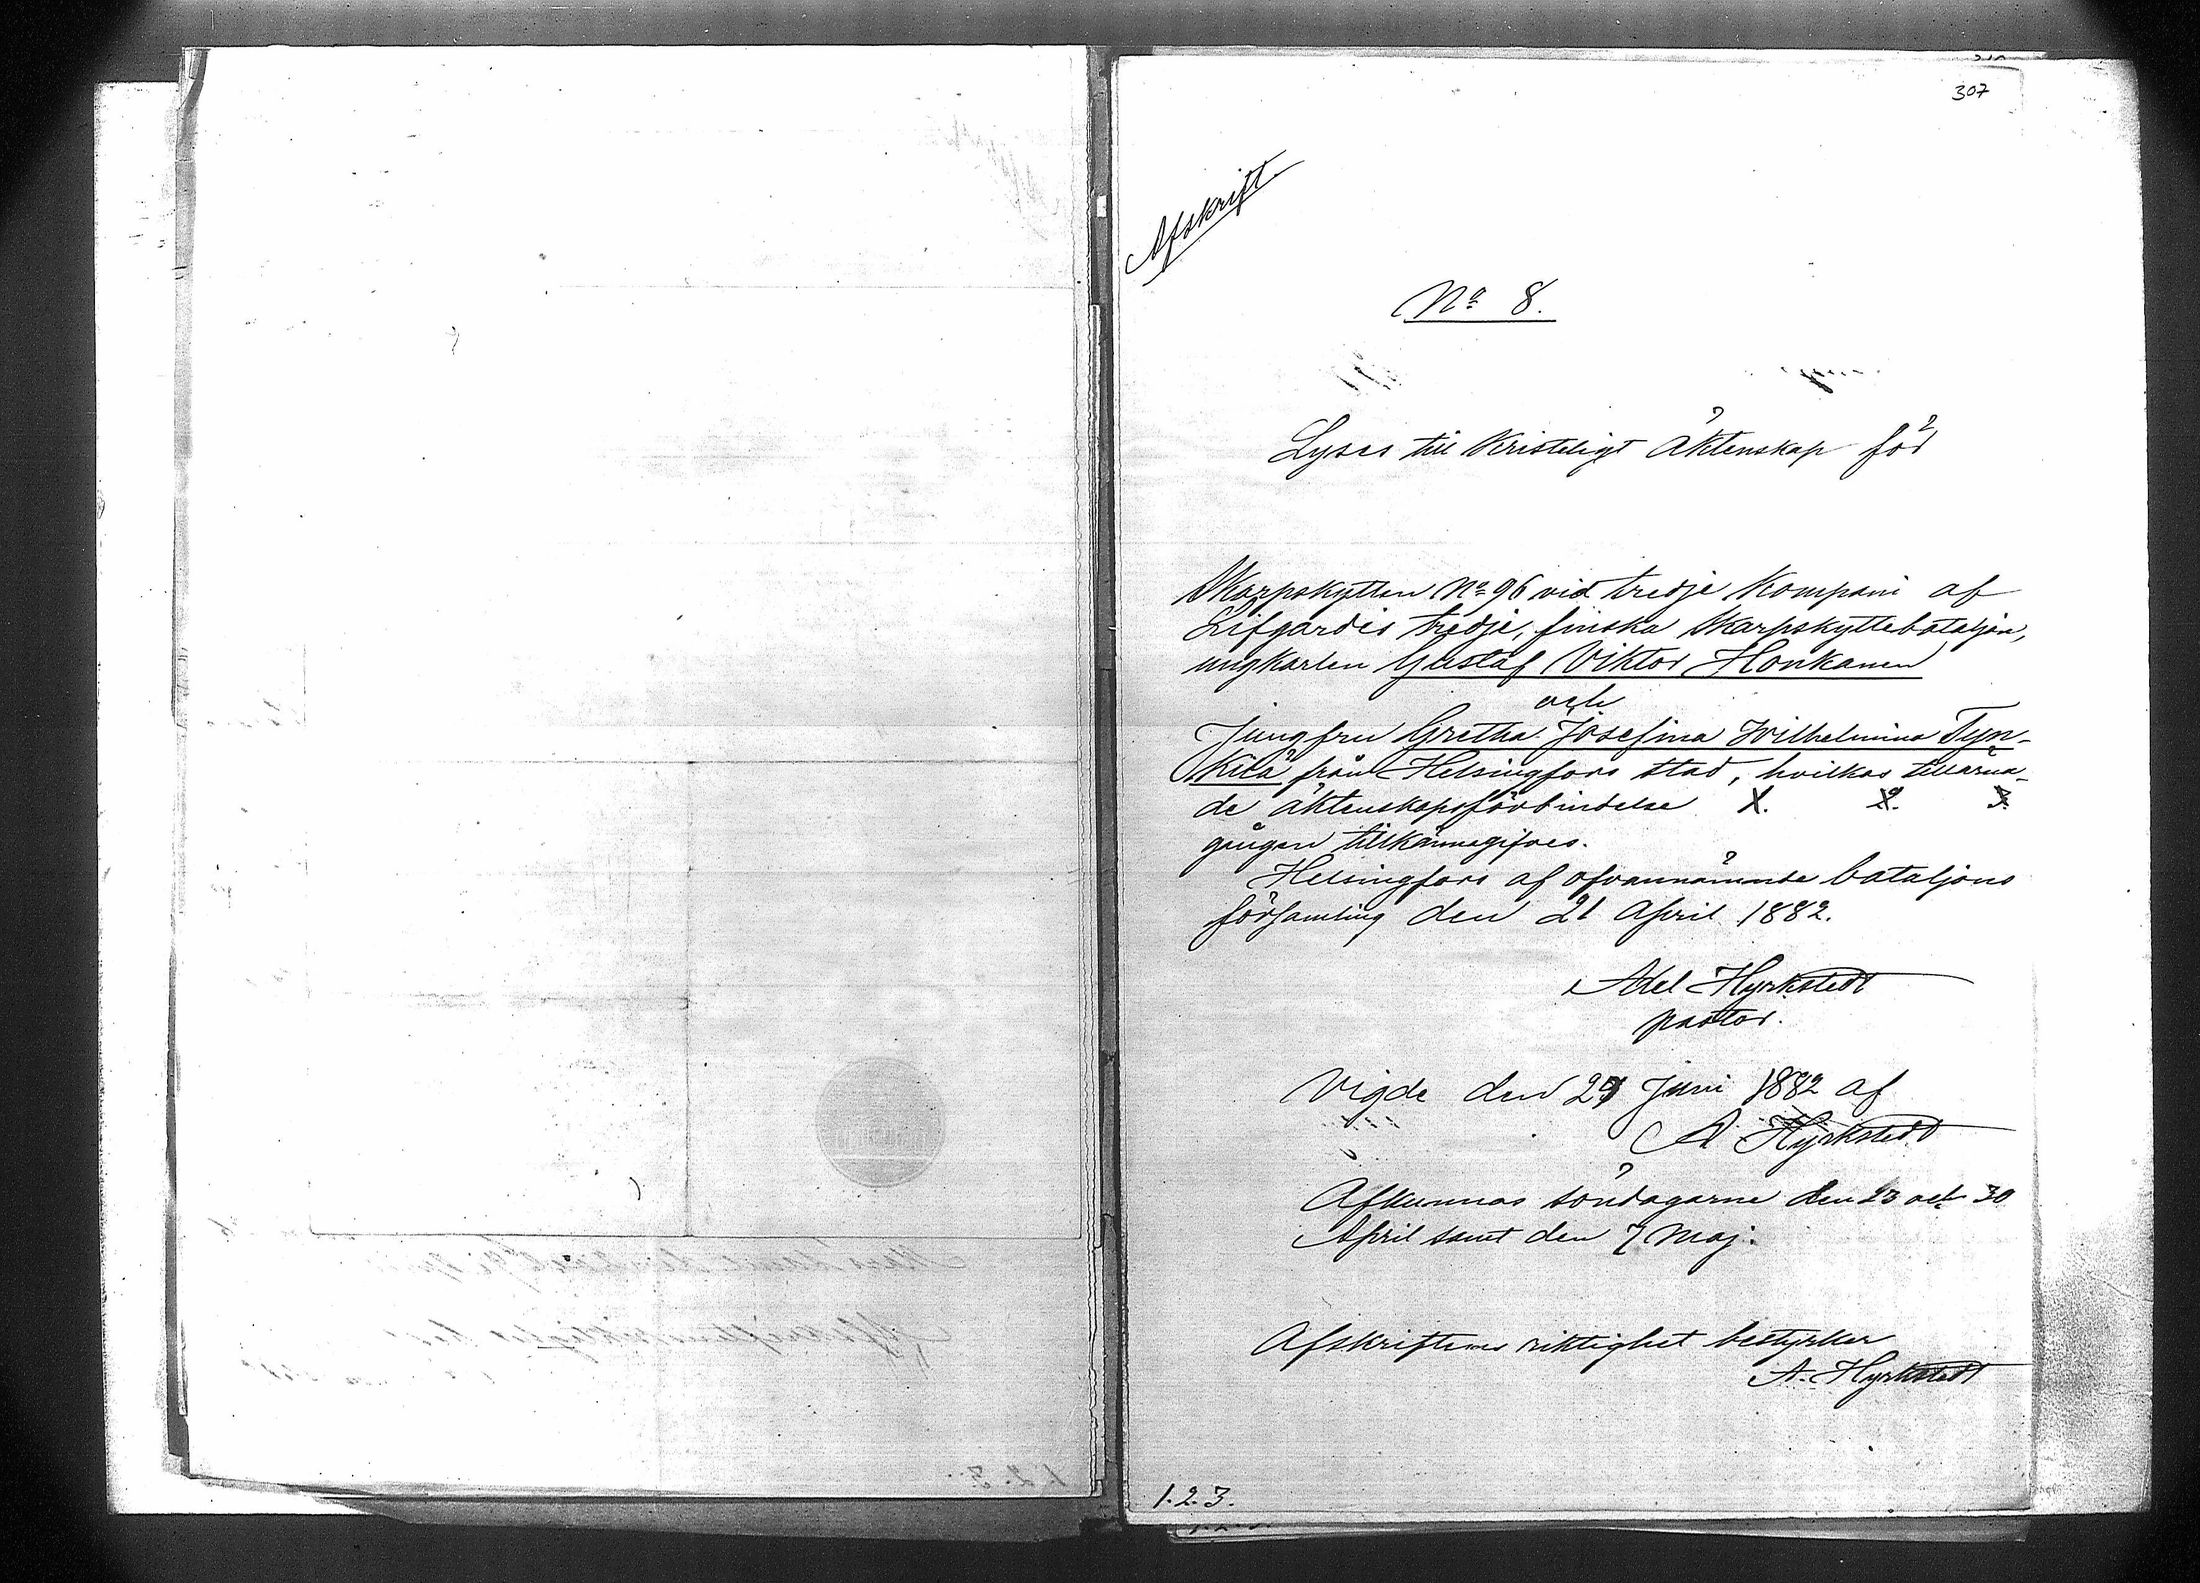 307
Afskrift
No 8.
Lyses till Kristeligt äktenskap för
Skarpskytten No 96 vid tredje Kompani af
Lifgardes tredje, finska Skarpskyttebataljon,
ungkarlen Gustaf Viktor Honkanen
och
Jungfru Gretha Josefina Wilhelmina Tyn-
kilä från Helsingfors stad, hvilkas tillärna-
de äktenskapsförbindelse X. 2. 3.
gången tillkännagifves.
Helsingfors af ofvannämnde bataljons
församling den 21 April 1882.
Axel Hyrkstedt
pastor.
Vigde den Juni 1882 af
A Hyrkstedt
Afkunnas söndagarne den 23 och 30
April samt den 7 Maj.
Afskriftens riktighet bestyrker
A. Hyrkstedt
1. 2. 3.